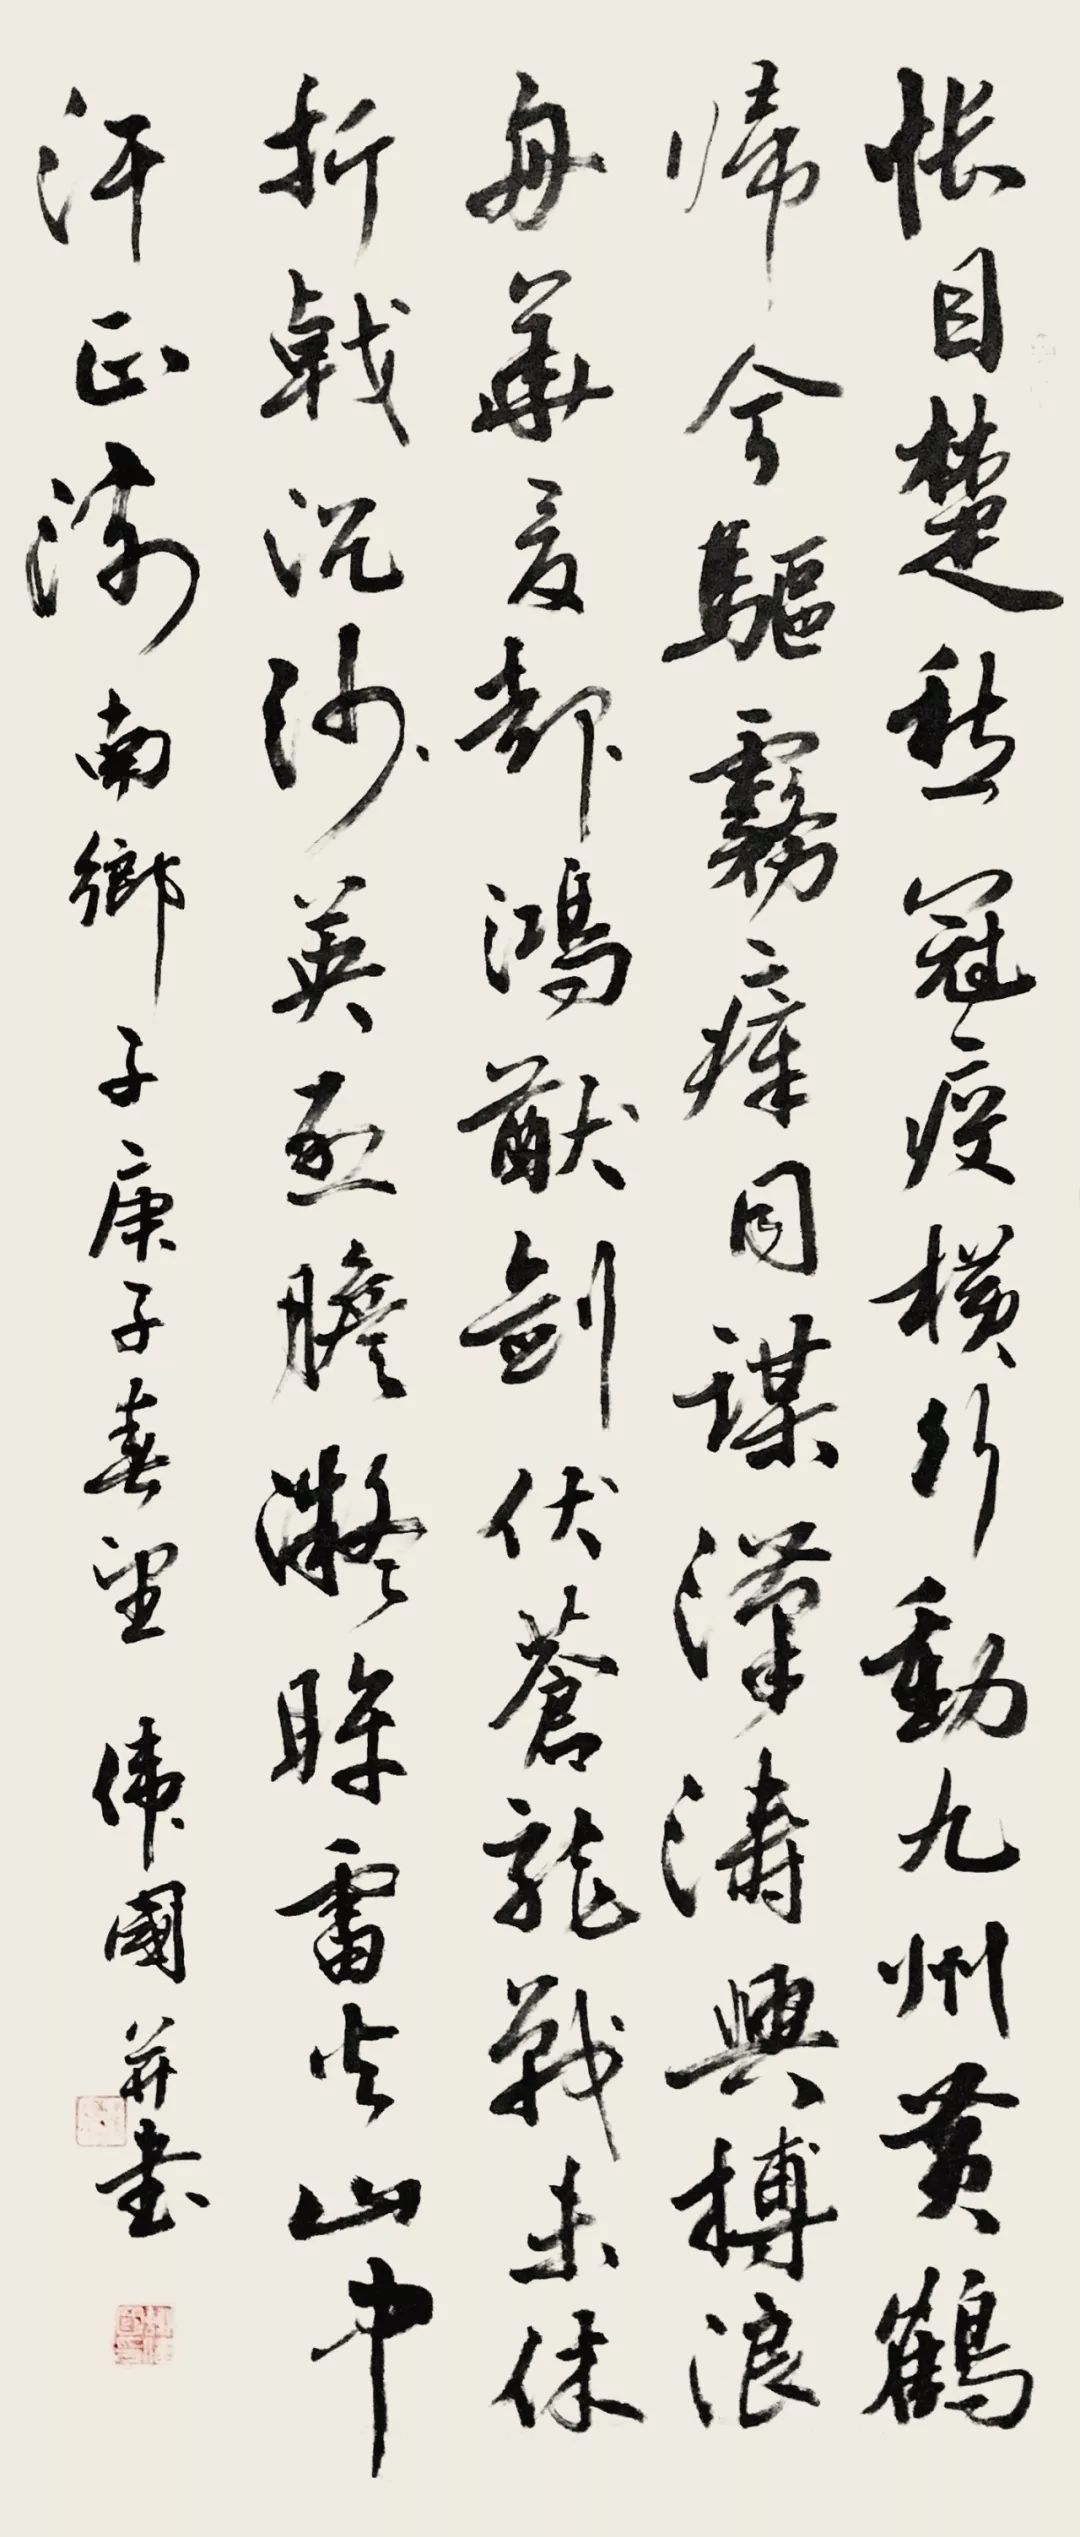 悵目楚愁冠疫橫行動九州黄鶴
帰兮驅霧瘴同謀漢濤興搏浪
舟華夏鴻猷劍伏蒼龍戰未休
折戟沉沙英膽凝眸雷火山中
汗正流南鄉子庚子春望 偉國并書